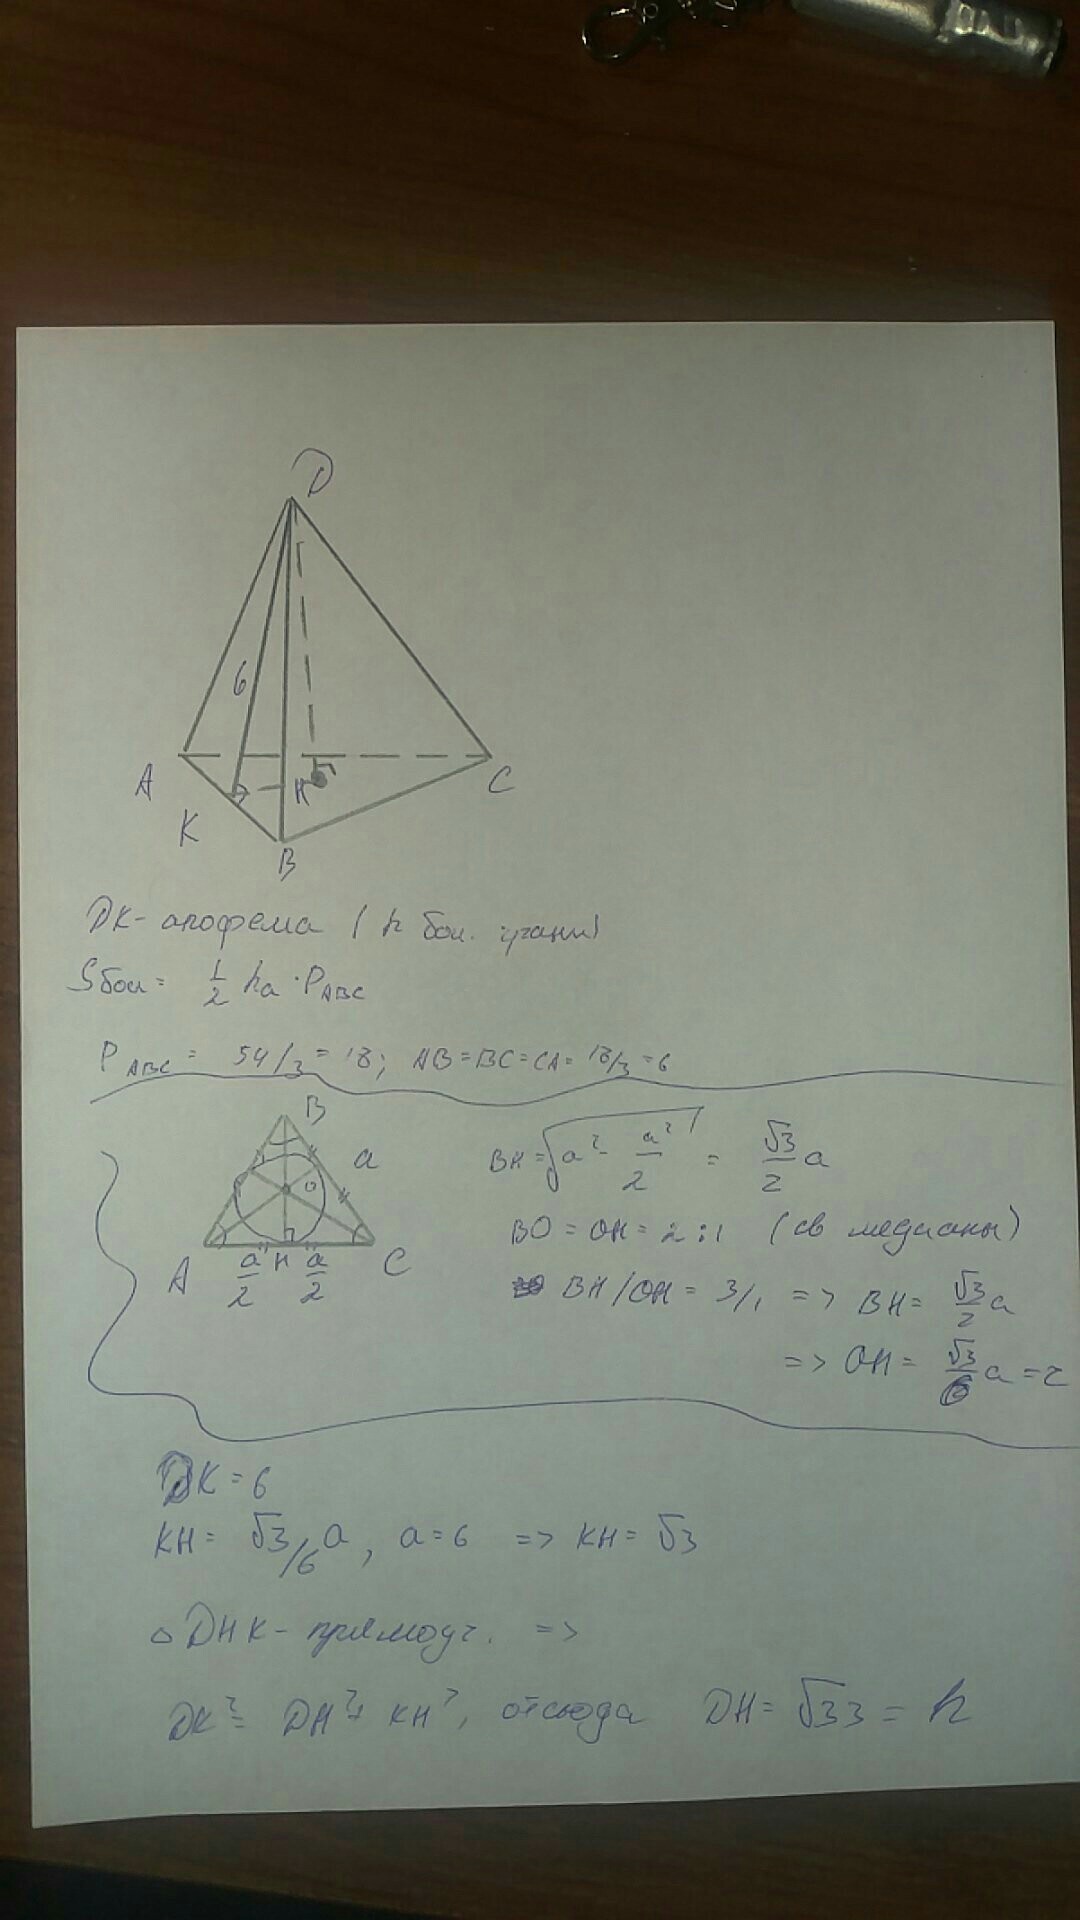 D
6
A
H
C
K
B
DK - апофема ( h бок. грани)
Sбок = 1/2 ha · PABC
PABC = 54/3 = 18; AB = BC = CA = 18/3 = 6
B
a
O
A
H
C
a/2
a/2
BH = √(a² - a²/2) = √3/2 a
BO = OH = 2:1 (св медианы)
BH/OH = 3/1 => BH = √3/2 a
=> OH = √3/6 a = r
DK = 6
KH = √3/6 a, a = 6 => KH = √3
△DHK - прямоуг. =>
DK² = DH² + KH², отсюда DH = √33 = h